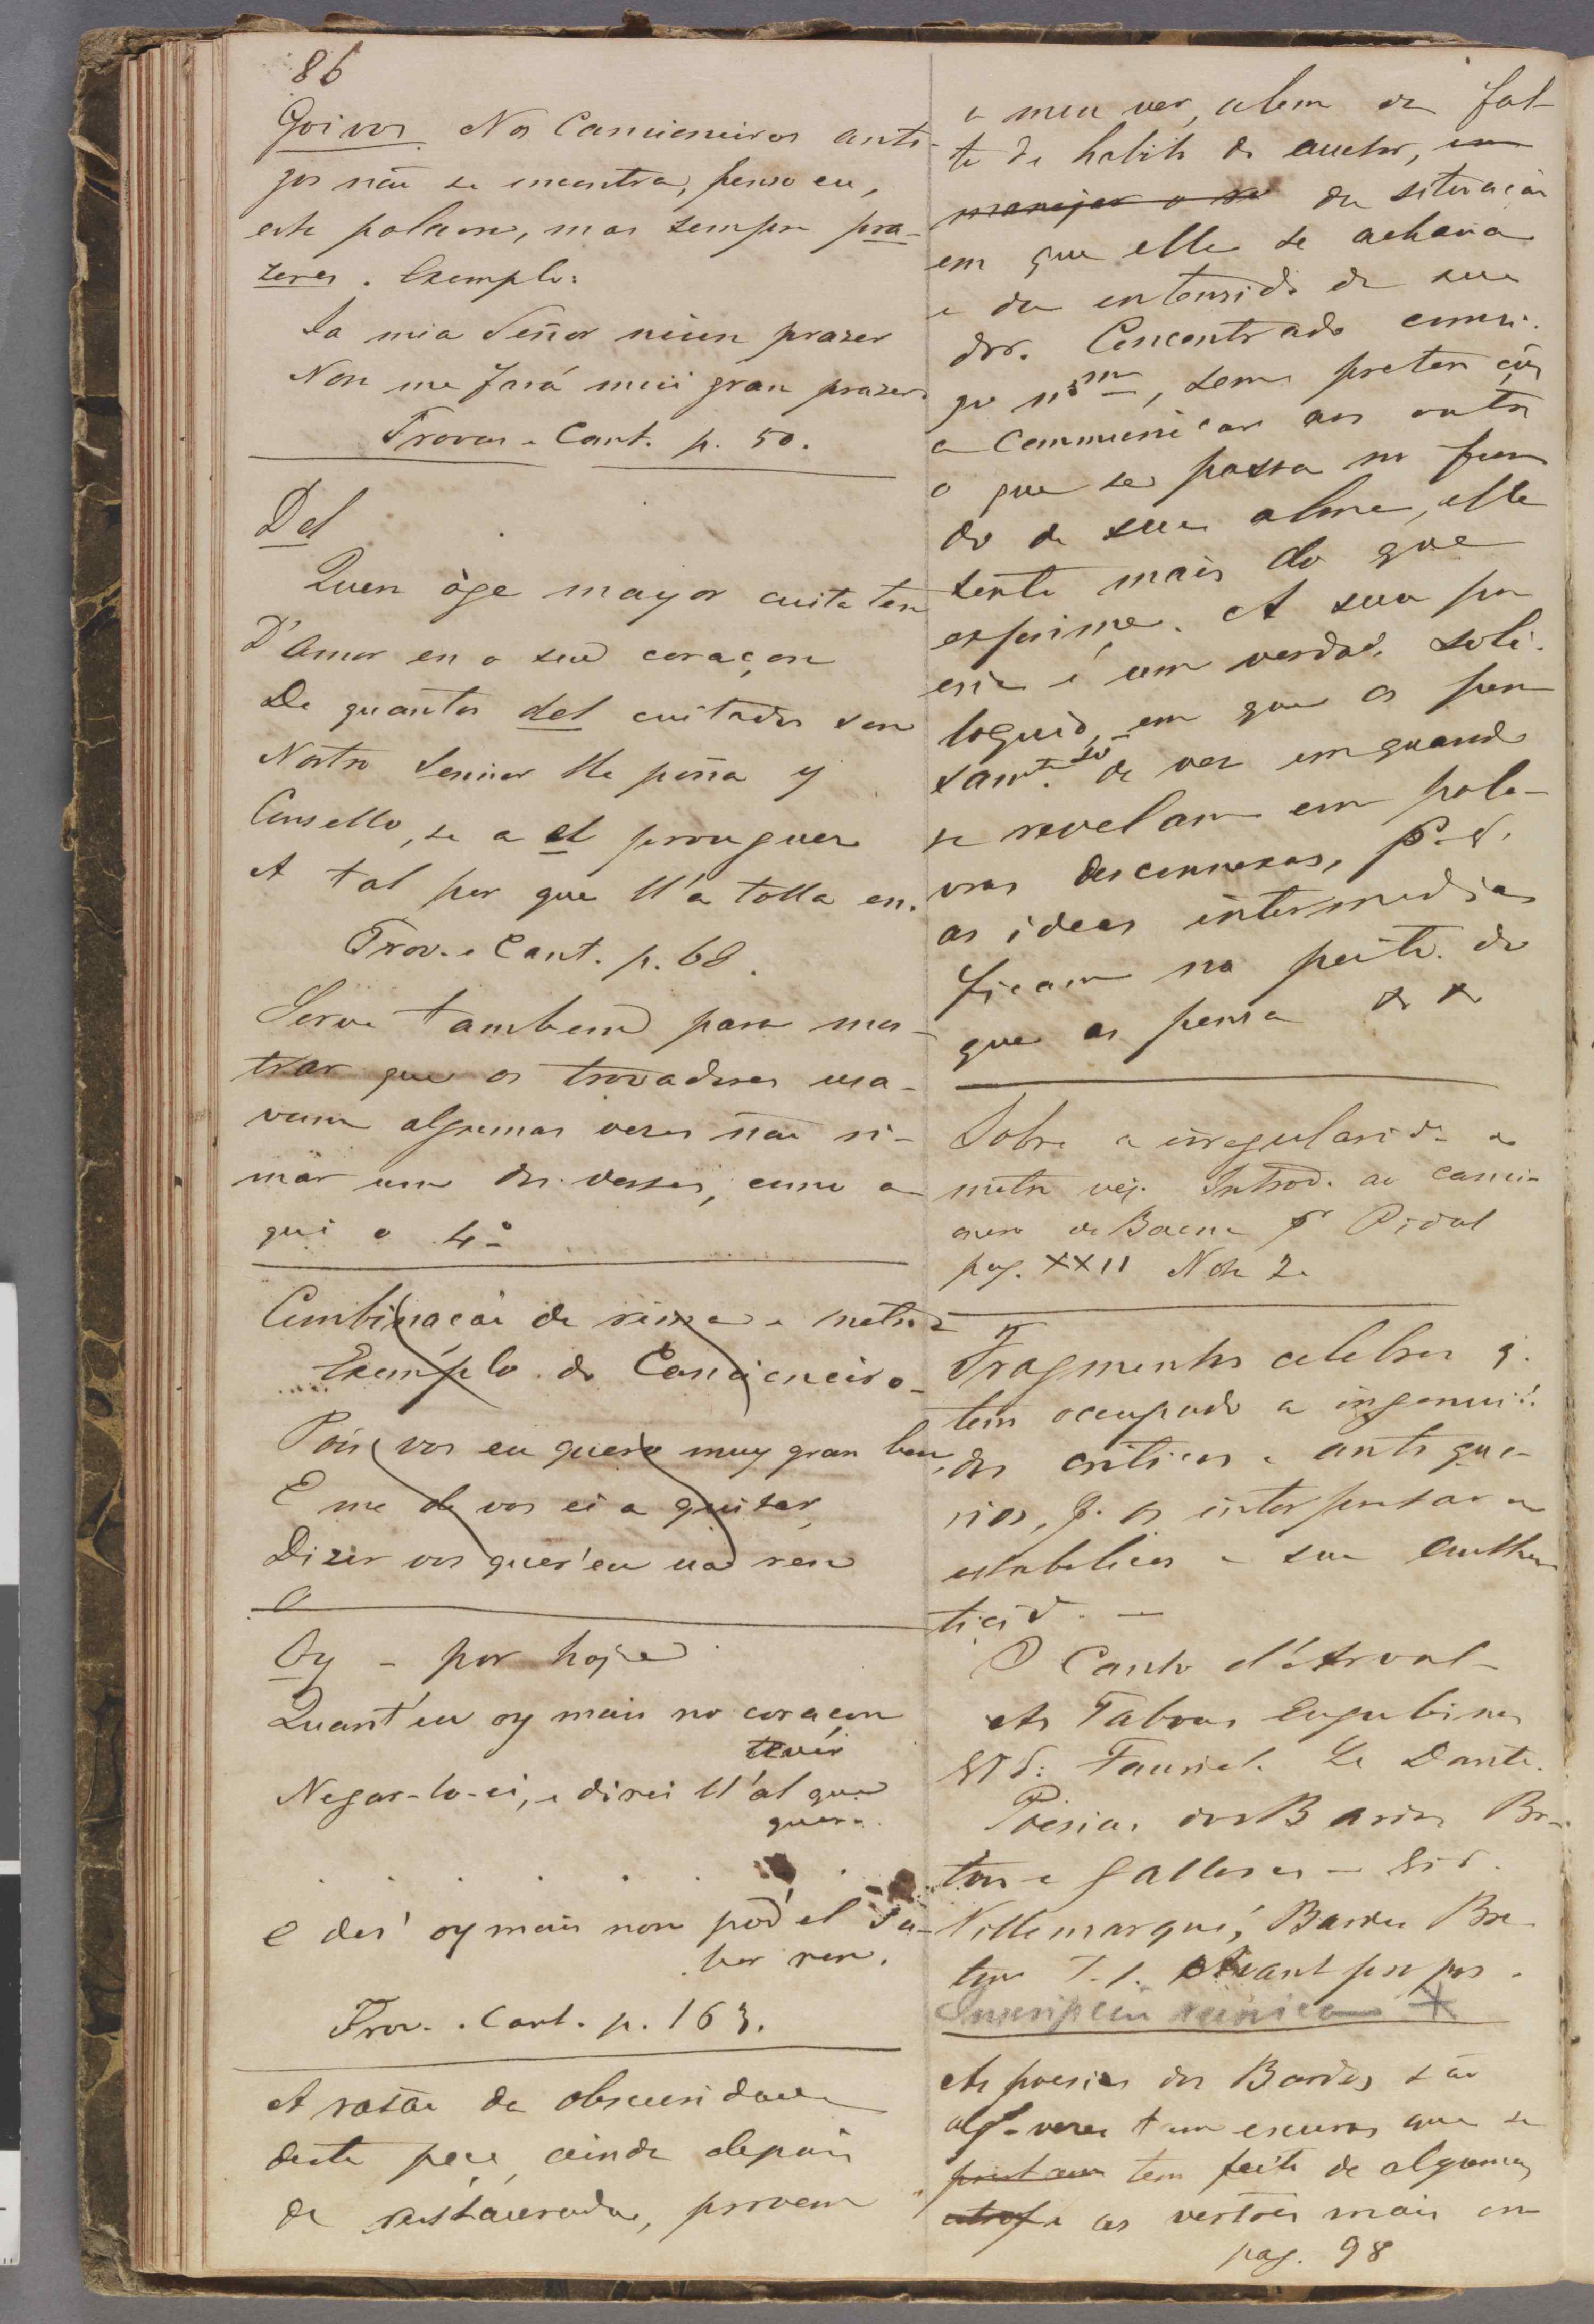 86
Goivos. Nos Cancioneiros anti-
gos não se encontra, penso eu,
esta palavra, mas sempre pra-
zeres. Exemplo:
Da mia Señor niun prazer
Non me fará mui gran prazer
Trovas e Cant. p. 50.
Del
Quen óge mayor cuita ten
D'Amor en o seu coraçon
De quantos del cuitados son
Nostro Sennor lle poña y
Consello, se a el prouguer
A tal per que ll'a tolla en.
Trov. e Cant. p. 68.
Serve tambem para mos-
trar que os trovadores usa-
vam algumas vezes não ri-
mar um dos versos, como a
qui o 4º
Combinação de rima e metro
Exemplo do Cancioneiro
Pois vos eu quero muy gran ben
E me de vos ei a quitar,
Dizer vos quer'eu ũa ren
Oy - por hoje
Quant'eu oy mais no coraçon
tevér
Negar-lo-ei, e direi ll'al que
quer.
. . . . . . .
e des' oy mais non pod'el sa-
ber ren.
Trov. e Cant. p. 163.
A rasão da obscuridade
desta peça, ainda depois
de restaurada, provem
a meu ver, alem da fal-
ta de habito do auctor, em
manejar o da situação
em que elle se achava
e da entensid.e da sua
dor. Concentrado comsi-
go msm, sem pretenção
a communicar aos outros
o que se passa no fun
do da sua alma, elle
sente mais do que
exprime. A sua po
esia é um verdad. soli-
loquio, em que os pen
sam.tos só de vez em quando
se revelam em pala-
vras desconnexas, p.q.
as ideas intermedias
ficam no peito do
que as pensa
Sobre a irregularid.e do
metro vej. Introd. ao Cancio-
nero de Baena pr Pidal
pag. XXII Nota 2
Fragmentos celebres q.
tem occupado a ingenuid.
dos criticos e antiqua-
rios, p. os interpretar e
estabelecer a sua authen
ticid. —
O Canto d'Arval
As Tabvas Eugubinas
Vid: Fauriel. Le Dante.
Poesias dos Bardos Bre-
tões e Gallezes — Vid.
Villemarqué, Bardes Bre
tons T. 1. Avant propos.
Inscripção runica
As poesias dos Bardos são
alg. vezes tam escuras que se
tem feito de algumas
as versões mais em
pag. 98